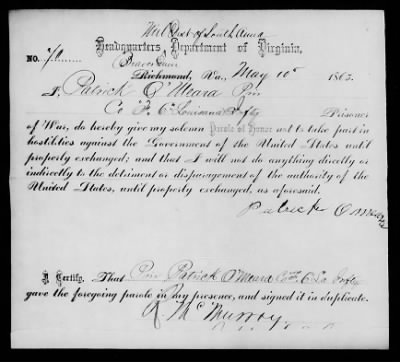 Mil Dist of South Anna
Headquarters, Department of Virginia,
NO. 70
Beaver Dam
Richmond, Va., May 10th 1865.
I, Patrick O'Meara Prv
Co "F" 6th Louisiana Infty Prisoner
of War, do hereby give my solemn Parole of Honor not to take part in
hostilities against the Government of the United States until
properly exchanged; and that I will not do anything directly or
indirectly to the detriment or disparagement of the authority of the
United States, until properly exchanged, as aforesaid.
Patrick O
I Certify, That Prv Patrick O'Meara Co F, 6 La Infty
gave the foregoing parole in my presence, and signed it in duplicate.
R McMurray